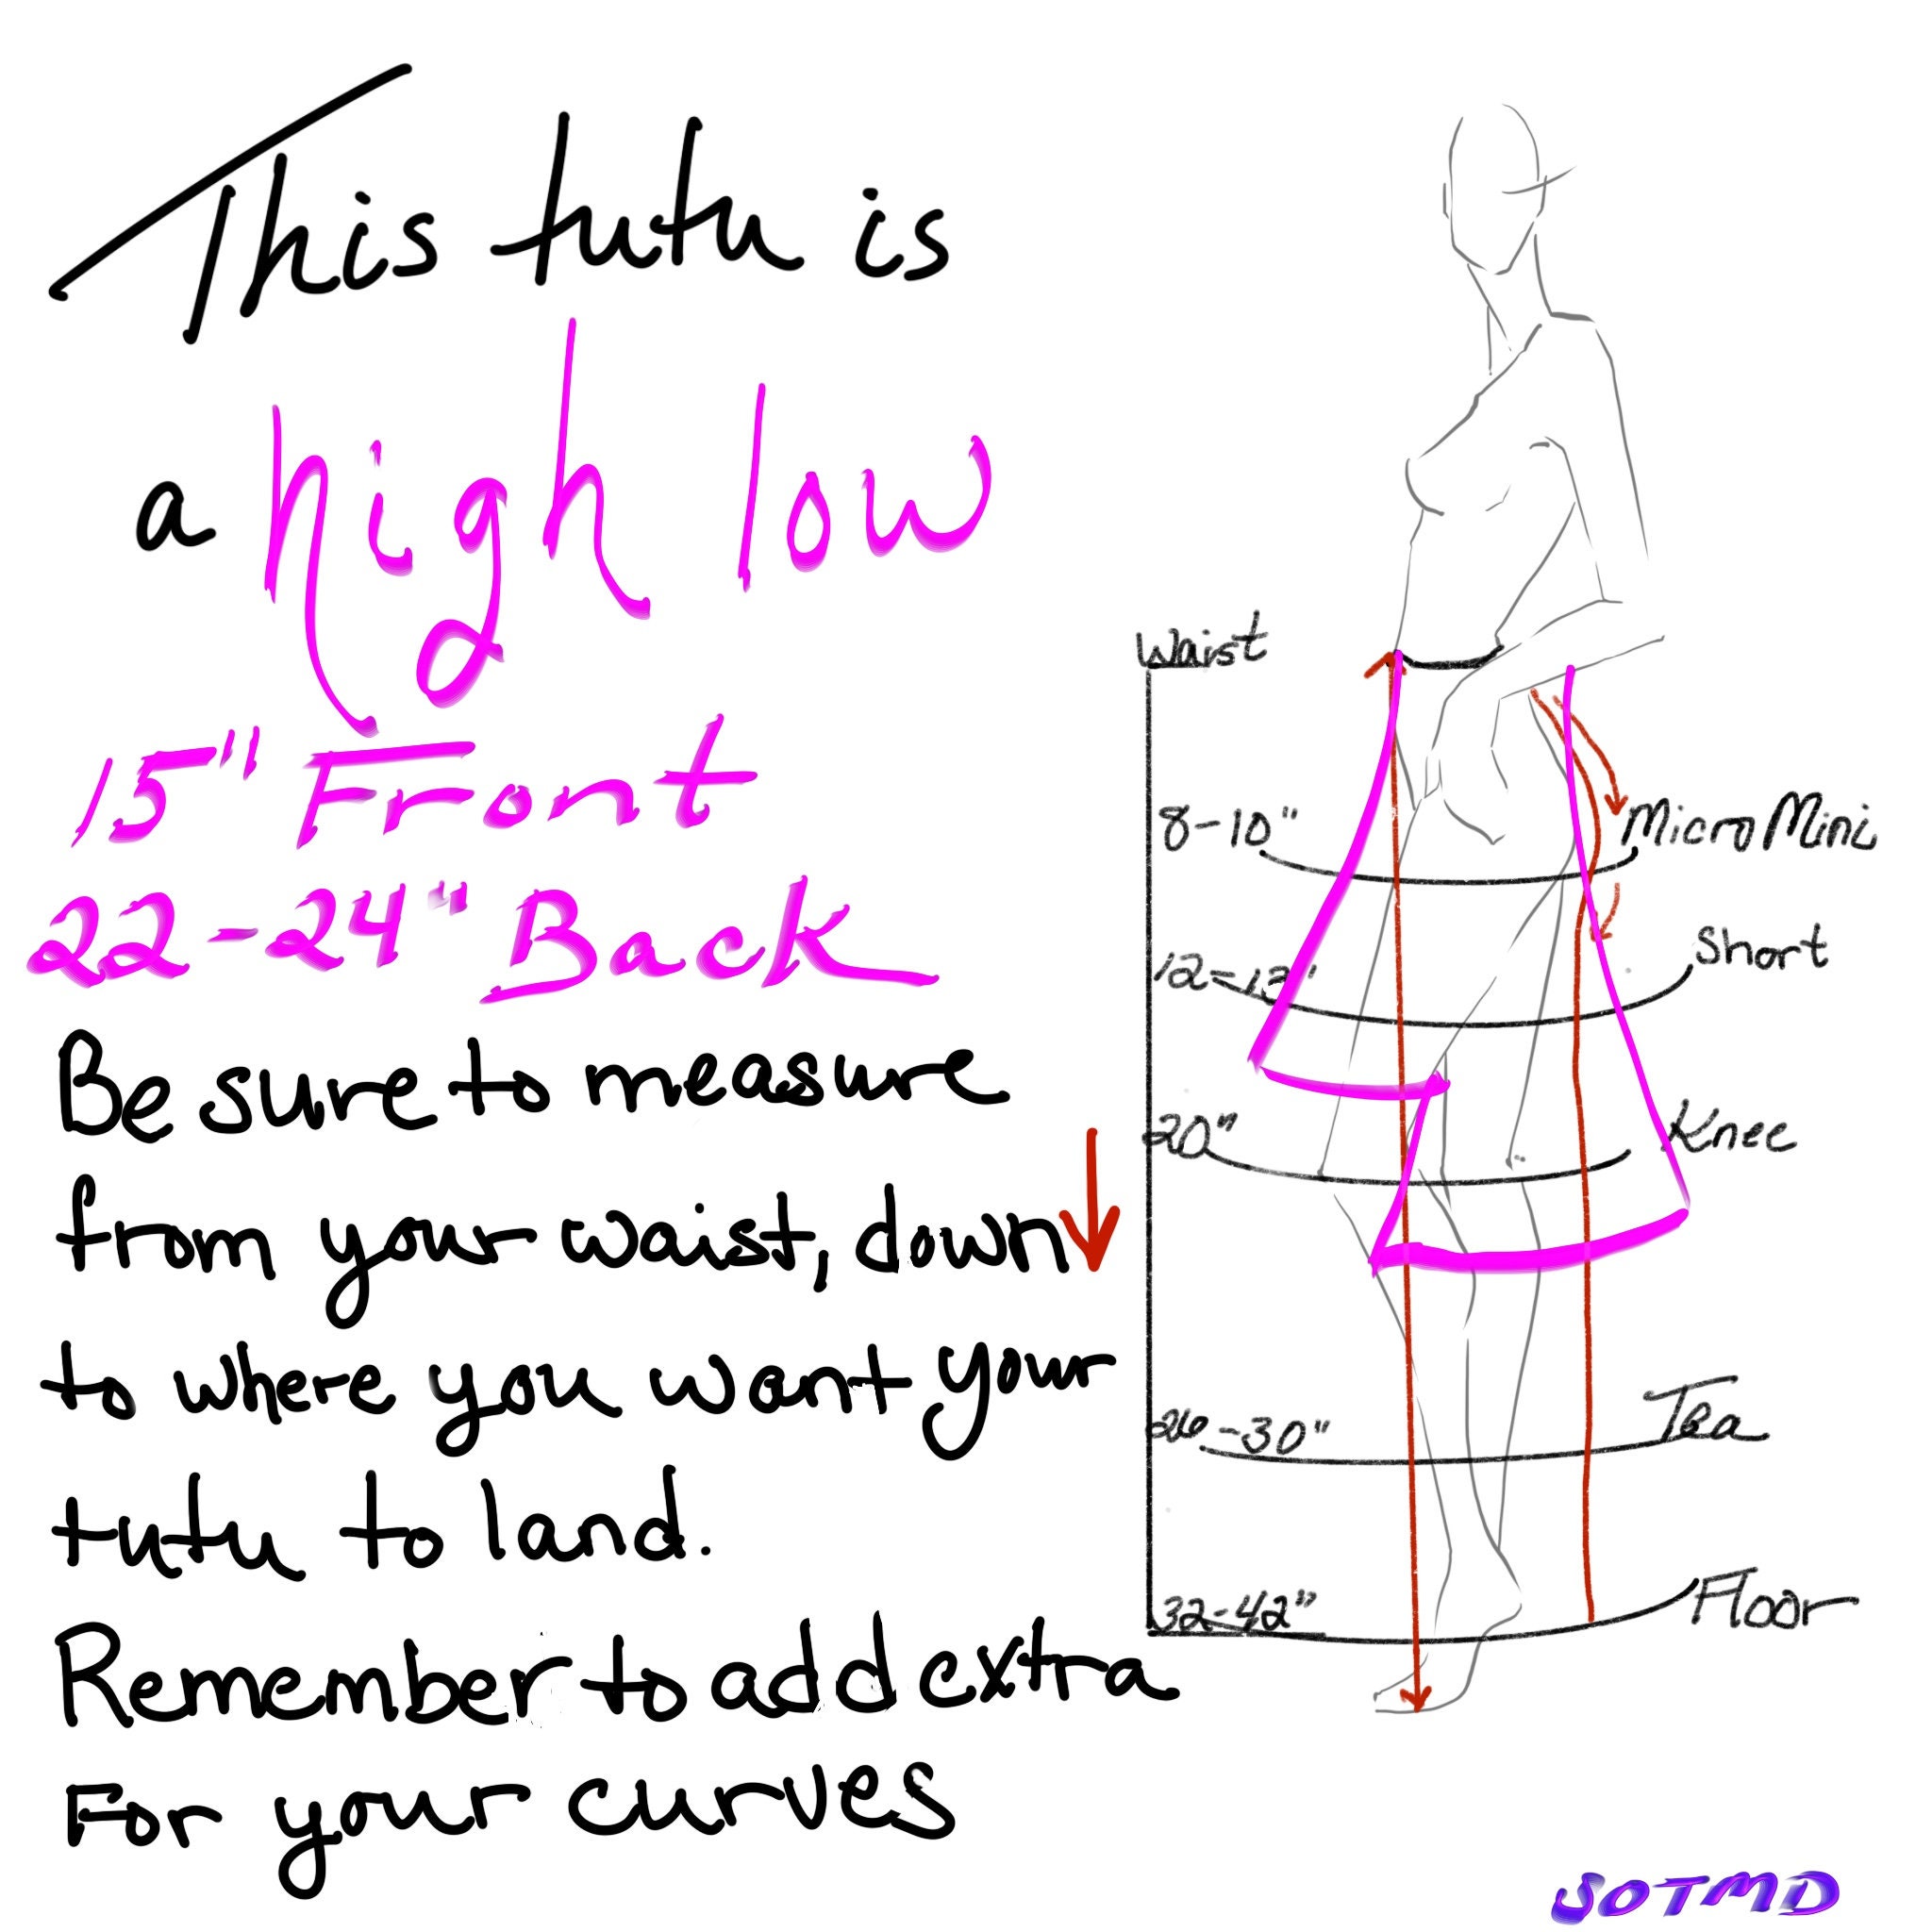 This tutu is
a high low
15" Front
22-24" Back
Be sure to measure
from your waist, down
to where you want your
tutu to land.
Remember to add extra
For your curves
Waist
8-10" Micro Mini
Short
20" Knee
26-30" Tea
32-42" Floor
SOTMD